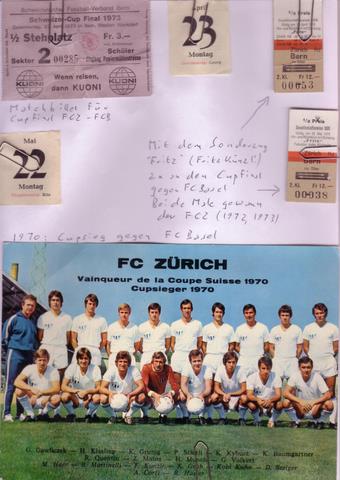 Schweizerischer Fussball-Verband Bern
Schweizer-Cup Final 1973
½ Stehplatz Fr. 3.—
Sektor 2 00285 Schüler
KUONI Wenn reisen, dann KUONI KUONI
April
23
Montag
½ Preis
Bern
2. Kl. Fr. 12.—
00053
Matchbillet für
Cupfinal FCZ - FCB
Mai
22
Montag
½ Preis
Bern
2. Kl. Fr. 12.—
00038
Mit dem Sonderzug
"Fritz" (Fritz Künzli)
zu den Cupfinal
gegen FC Basel
Beide Male gewann
der FCZ (1972, 1973)
1970: Cupsieg gegen FC Basel
FC ZÜRICH
Vainqueur de la Coupe Suisse 1970
Cupsieger 1970
G. Gawliczek — H. Kissling — K. Grünig — P. Stierli — K. Kyburz — K. Baumgartner
R. Quentin — Z. Matus — H. G. Volkert
R. Martinelli — F. Künzli — K. Grob — Kobi Kuhn — D. Beriger
A. Corti — R.